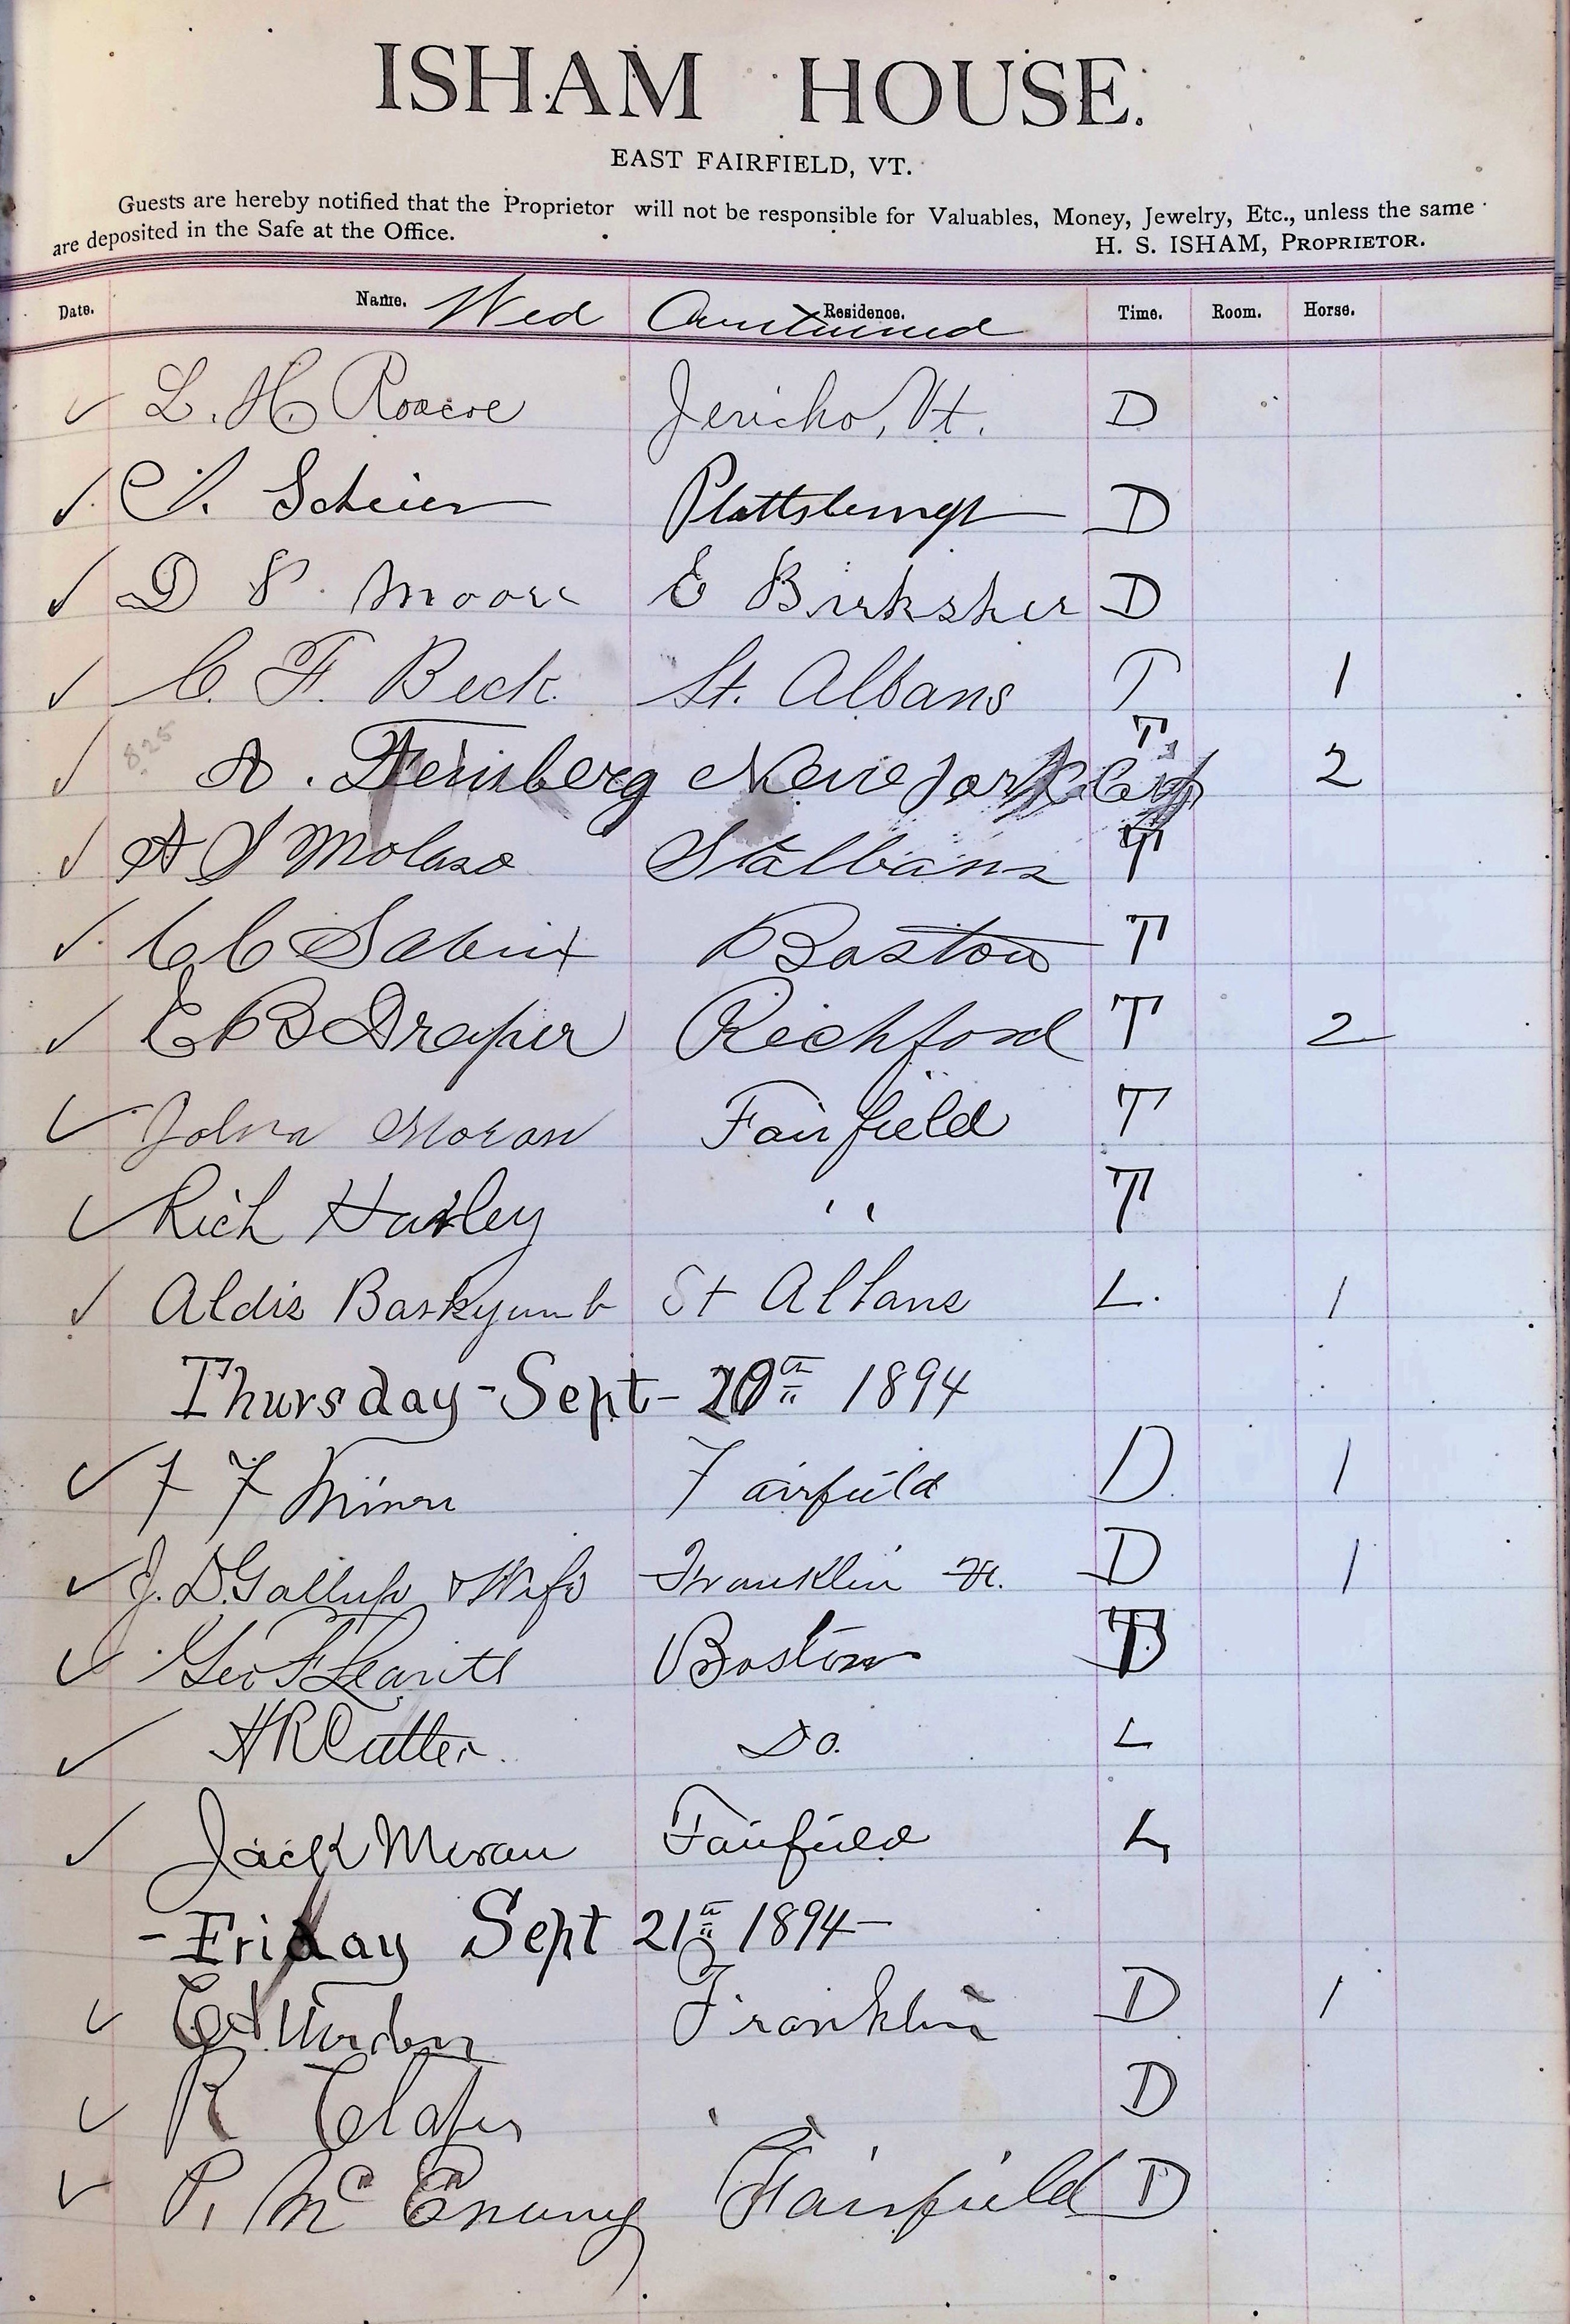 ISHAM HOUSE.
EAST FAIRFIELD, VT.
Guests are hereby notified that the Proprietor will not be responsible for Valuables, Money, Jewelry, Etc., unless the same
are deposited in the Safe at the Office.
H. S. ISHAM, PROPRIETOR.
Date. Name. Wed Residence. Time. Room. Horse.
L. H. Roscoe Jericho, Vt. D
Scheier Plattsburgh D
D P. Moore E Birksher D
C. F. Beck. St. Albans T 1
825 A. Feinberg New York City T 2
A J St albans T
C C Boston T
Draper Richford T 2
Moran Fairfield T
Rich " T
Aldis St Albans L. 1
Thursday - Sept - 20th 1894
F F Fairfield D. 1
J. D. Gallup & Wife Franklin Vt. D 1
Geo F Boston
H R Cutter. Do. L
Jack Moran Fairfield L
- Friday Sept 21th 1894 -
Franklin D 1
R D
P. Mc Fairfield D